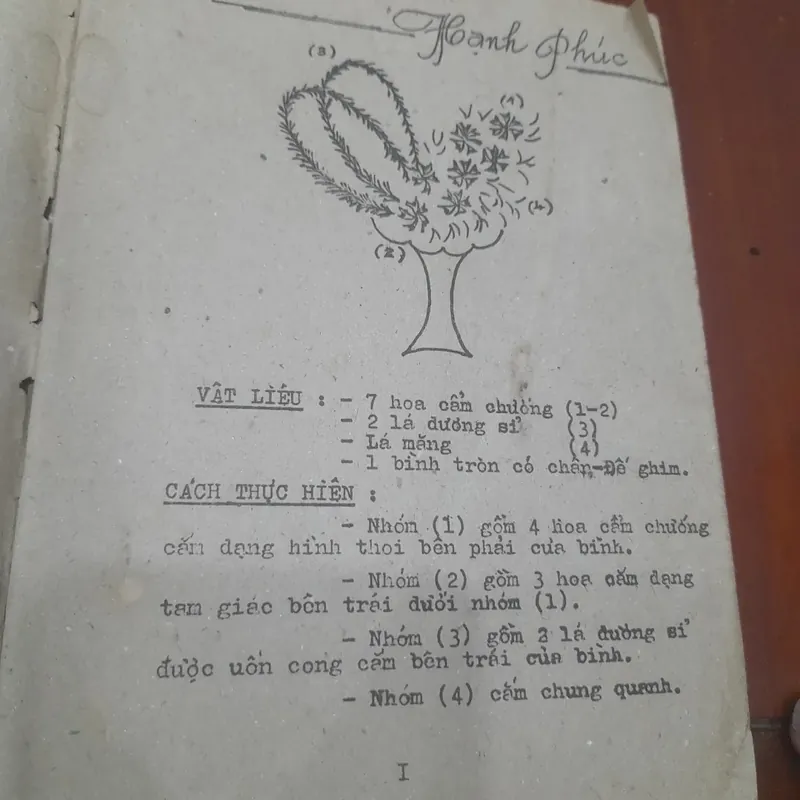 Hạnh Phúc
(3)
(1)
(4)
(2)
VẬT LIỆU : - 7 hoa cẩm chướng (1-2)
- 2 lá dương sỉ (3)
- Lá măng (4)
- 1 bình tròn có chân-Đế ghim.
CÁCH THỰC HIỆN :
- Nhóm (1) gồm 4 hoa cẩm chướng
cắm dạng hình thoi bên phải của bình.
- Nhóm (2) gồm 3 hoa cắm dạng
tam giác bên trái dưới nhóm (1).
- Nhóm (3) gồm 2 lá dương sỉ
được uốn cong cắm bên trái của bình.
- Nhóm (4) cắm chung quanh.
I